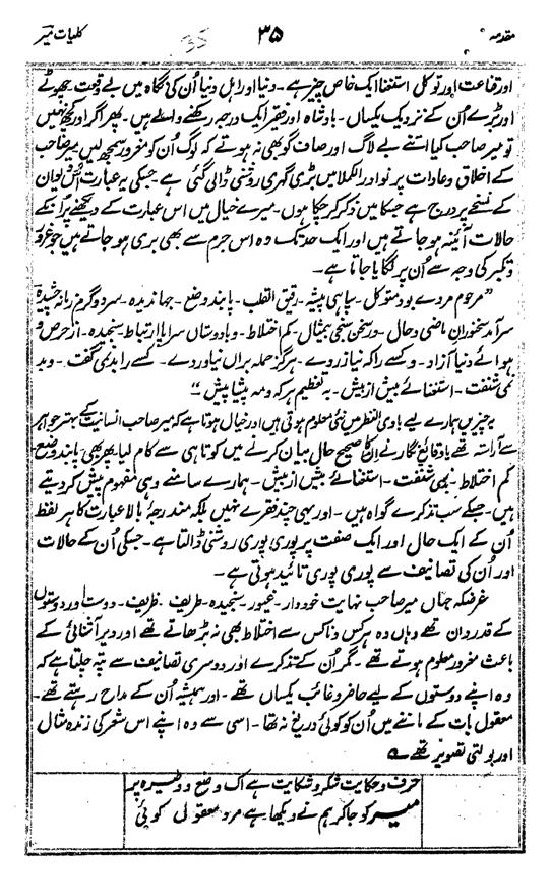 مقدمہ ۳۵ کلیات میر
35
اور قناعت اور توکل استغنا ایک خاص چیز ہے۔ دنیا اور اہل دنیا اُن کی نگاہ میں بے وقعت چھوٹے
اور بڑے اُن کے نزدیک یکساں۔ بادشاہ اور فقیر ایک درجہ رکھنے والے ہیں۔ پھر اگر اور کچھ نہیں
تو میر صاحب کیا اتنے بے لاگ اور صاف گو بھی نہ ہوتے کہ لوگ اُن کو مغرور سمجھ لیں میر صاحب
کے اخلاق و عادات پر نوادر الکملا میں بڑی گہری روشنی ڈالی گئی ہے جسکی یہ عبارت اُس دیوان
کے نسخے پر درج ہے جسکا میں ذکر کر چکا ہوں۔ میرے خیال میں اس عبارت کے دیکھنے پر انکے
حالات آئینہ ہو جاتے ہیں اور ایک حد تک وہ اس جرم سے بھی بری ہو جاتے ہیں جو غرور
و تکبر کی وجہ سے اُن پر لگایا جاتا ہے۔
"مرحوم مردے بود متوکل۔ سپاہی پیشہ۔ رقیق القلب۔ پابند وضع۔ جہاندیدہ۔ سرد و گرم زمانہ چشیدہ
سرآمد سخنوران ماضی و حال۔ و در سخن سنجی بیمثال۔ کم اختلاط۔ و با دوستاں سراپا ارتباط سنجیدہ۔ از حرص و
ہوائے دنیا آزاد۔ و کسے را کہ نیازردے۔ ہرگز حملہ براں نیاوردے۔ کسے را بدی نگفت۔ و بد
نمی شنفت۔ استغنائے بیش از بیش۔ بہ تعظیم ہر کہ و مہ پیشا پیش"
یہ چیزیں ہمارے لیے بادی النظر میں نئی معلوم ہوتی ہیں اور خیال ہوتا ہے کہ میر صاحب انسانیت کے بہتر جواہر
سے آراستہ تھے یا وقائع نگار نے اِن کا صحیح حال بیان کرنے میں کوتاہی سے کام لیا۔ پھر بھی پابند وضع۔
کم اختلاط۔ نمی شنفت۔ استغنائے بیش از بیش۔ ہمارے سامنے وہی مفہوم پیش کر دیتے
ہیں۔ جسکے سب تذکرے گواہ ہیں۔ اور یہی چند فقرے نہیں بلکہ مندرجۂ بالا عبارت کا ہر لفظ
اُن کے ایک حال اور ایک صفت پر پوری پوری روشنی ڈالتا ہے۔ جسکی اُن کے حالات
اور اُن کی تصانیف سے پوری پوری تائید ہوتی ہے۔
غرضکہ جہاں میر صاحب نہایت خوددار۔ غیور۔ سنجیدہ۔ ظریف۔ دوست اور دوستوں
کے قدردان تھے وہاں وہ ہر کس و ناکس سے اختلاط بھی نہ بڑھاتے تھے اور دیر آشنائی کے
باعث مغرور معلوم ہوتے تھے۔ مگر اُن کے تذکرے اور دوسری تصانیف سے پتہ چلتا ہے کہ
وہ اپنے دوستوں کے لیے حاضر و غائب یکساں تھے۔ اور ہمیشہ اُن کے مداح رہتے تھے۔
معقول بات کے ماننے میں اُن کو کوئی دریغ نہ تھا۔ اسی سے وہ اپنے اس شعر کی زندہ مثال
اور بولتی تصویر تھے۔
حرف و حکایت شکر و شکایت ہے اک وضع و وتیرہ پر
میر کو جا کر ہم نے دیکھا ہے مرد معقول کوئی